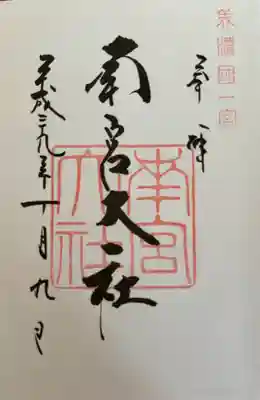 美濃國一宮
奉拝
南宮大社
南宮大社
平成二九年十月九日